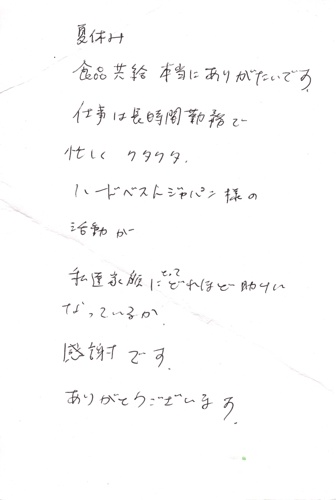 夏休み
食品共給 本当にありがたいです。
仕事は長時間勤務で
忙しく クタクタ。
ハードベストジャパン様の
活動が
私達家族にとってどれほど助けに
なっているか。
感謝です。
ありがとうございます。